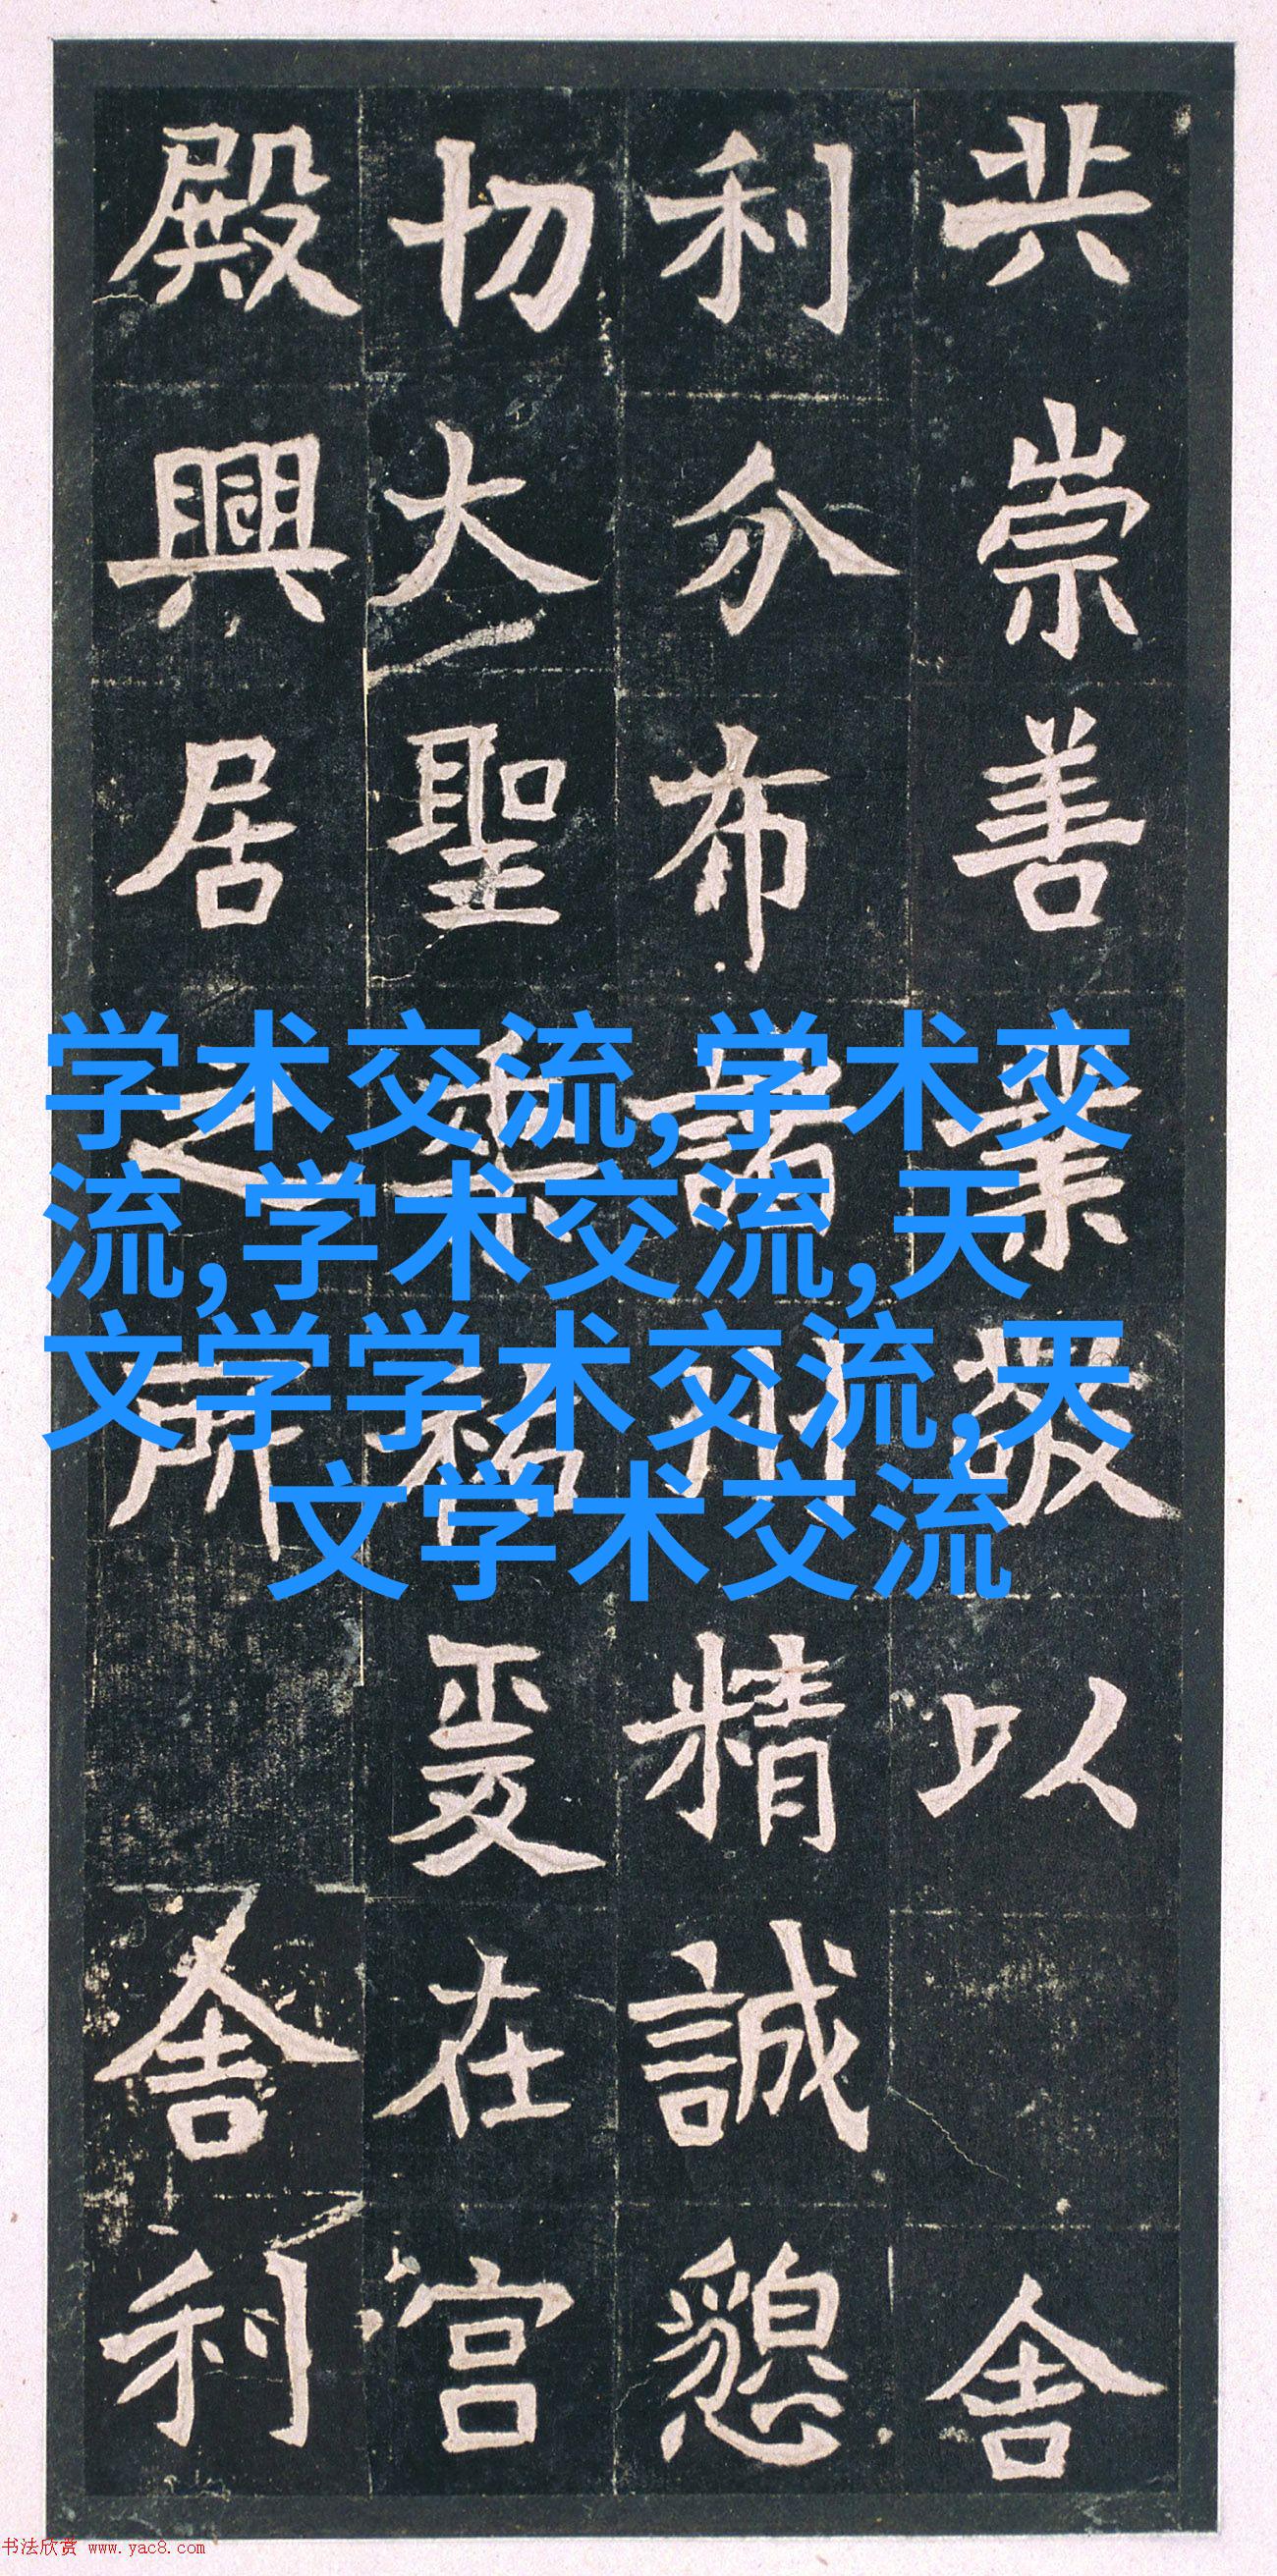 共崇善業敬以舍
利分布諸州精誠懇
切大聖垂祐爰在宮
殿興居之所舍利
学术交流,学术交
流,学术交流,天
文学学术交流,天
文学术交流
书法欣赏 www.yac8.com